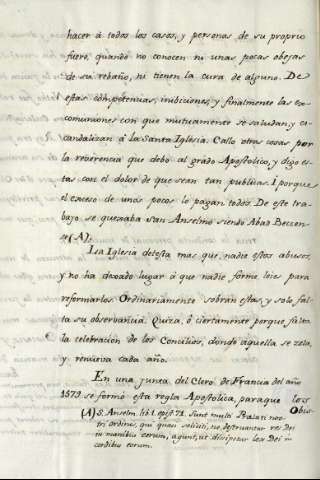 hacer à todos los casos, y personas de su proprio
fuero, quando no conocen ni unas pocas obejas
de su rebaño, ni tienen la cura de alguno. De
estas competencias, inibiciones, y finalmente las ex-
comuniones con que mutuamente se saludan, y es-
candalizan à la Santa Iglesia. Callo otras cosas por
la reverencia que debo al grado Apostolico, y digo es-
tas con el dolor de que sean tan publicas. I porque
el exceso de unos pocos lo pagan todos. De este tra-
bajo se quexaba San Anselmo siendo Abad Beccen-
se (A).
La Iglesia detesta mas que nadie estos abusos,
y no ha dexado lugar à que nadie forme leies para
reformarlos. Ordinariamente sobran estas, y solo fal-
ta su observancia. Quiza, ò ciertamente porque falta
la celebracion de los Concilios, donde aquella se zela,
y renueva cada año.
En una junta del Clero de Francia del año
1579 se formò esta regla Apostolica, paraque los
Obis-
(A) S. Anselm. lib. 1. epist. 71. Sunt multi Prælati nos-
tri ordinis, qui quasi soliciti, ne destruantur res Dei
in manibus eorum, agunt, ut dissipetur lex Dei in
cordibus eorum.